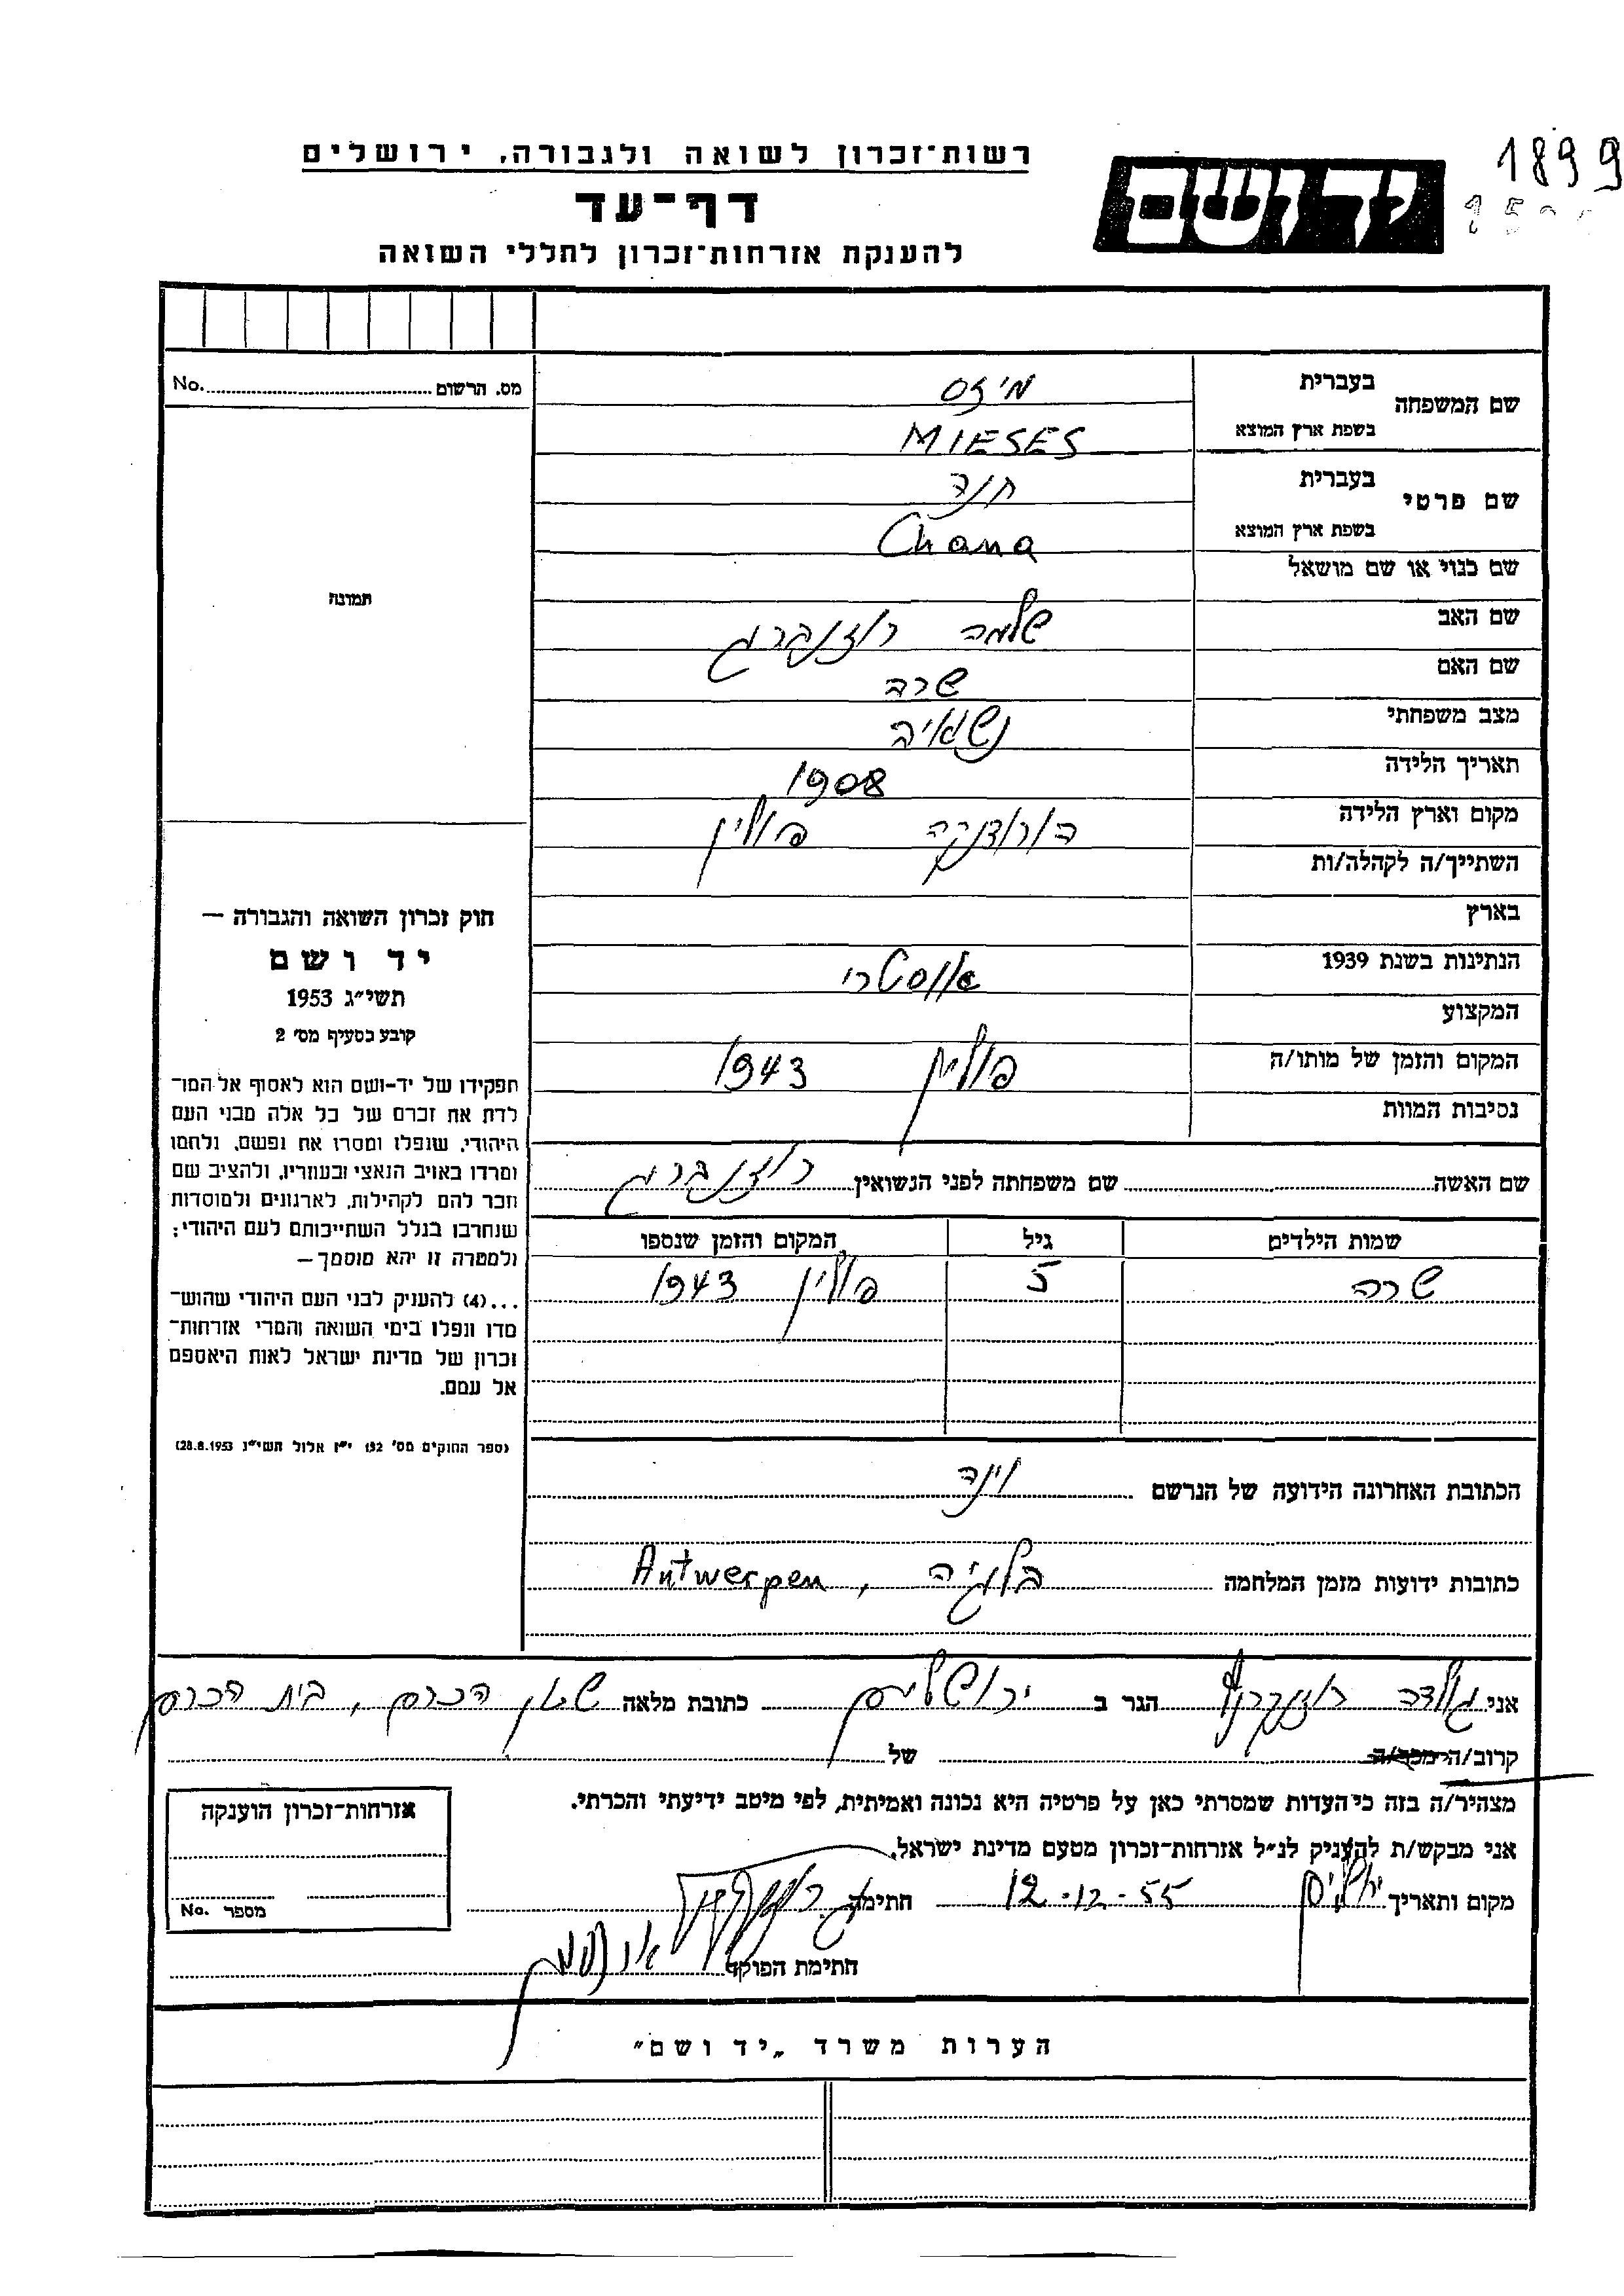 1899
רשות־זכרון לשואה ולגבורה, ירושלים
יד ושם
דף־עד
להענקת אזרחות־זכרון לחללי השואה
מס. הרשום No.
שם המשפחה בעברית מיזס
בשפת ארץ המוצא MIESES
שם פרטי בעברית חנה
בשפת ארץ המוצא Chana
שם כנוי או שם מושאל
תמונה
שם האב שלמה רוזנברג
שם האם שרה
מצב משפחתי נשואיה
תאריך הלידה 1908
מקום וארץ הלידה הורודנקה פולין
השתייך/ה לקהלה/ות
בארץ
הנתינות בשנת 1939 אוסטרי
המקצוע
המקום והזמן של מותו/ה פולין 1943
נסיבות המוות
שם האשה שם משפחתה לפני הנשואין רוזנברג
שמות הילדים גיל המקום והזמן שנספו
שרה 5 פולין 1943
הכתובת האחרונה הידועה של הנרשם וינה
כתובות ידועות מזמן המלחמה בלגיה, Antwerpen
חוק זכרון השואה והגבורה —
יד ושם
תשי״ג 1953
קובע בסעיף מס׳ 2
תפקידו של יד-ושם הוא לאסוף אל המו־
לדת את זכרם של כל אלה מבני העם
היהודי, שנפלו ומסרו את נפשם, נלחמו
ומרדו באויב הנאצי ובעוזריו, ולהציב שם
וזכר להם לקהילות, לארגונים ולמוסדות
שנחרבו בגלל השתייכותם לעם היהודי;
ולמטרה זו יהא מוסמך —
...(4) להעניק לבני העם היהודי שהוש־
מדו ונפלו בימי השואה והמרי אזרחות־
זכרון של מדינת ישראל לאות היאספם
אל עמם.
(ספר החוקים מס׳ 132 י״ז אלול תשי״ג 28.8.1953)
אני גולדה רוזנקרנץ הגר ב ירושלים כתובת מלאה שאון הכרם, בית הכרם
קרוב/ה מכר/ה של
מצהיר/ה בזה כי העדות שמסרתי כאן על פרטיה היא נכונה ואמיתית, לפי מיטב ידיעתי והכרתי.
אני מבקש/ת להעניק לנ״ל אזרחות־זכרון מטעם מדינת ישראל.
מקום ותאריך 12-12-55 חתימה
חתימת הפוקד
אזרחות־זכרון הוענקה
מספר No.
הערות משרד „יד ושם״